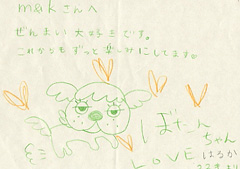 makさんへ
ぜんまい大好きです。
これからもずっと楽しみにしてます。
ぼたん
ちゃん
LOVE はるか